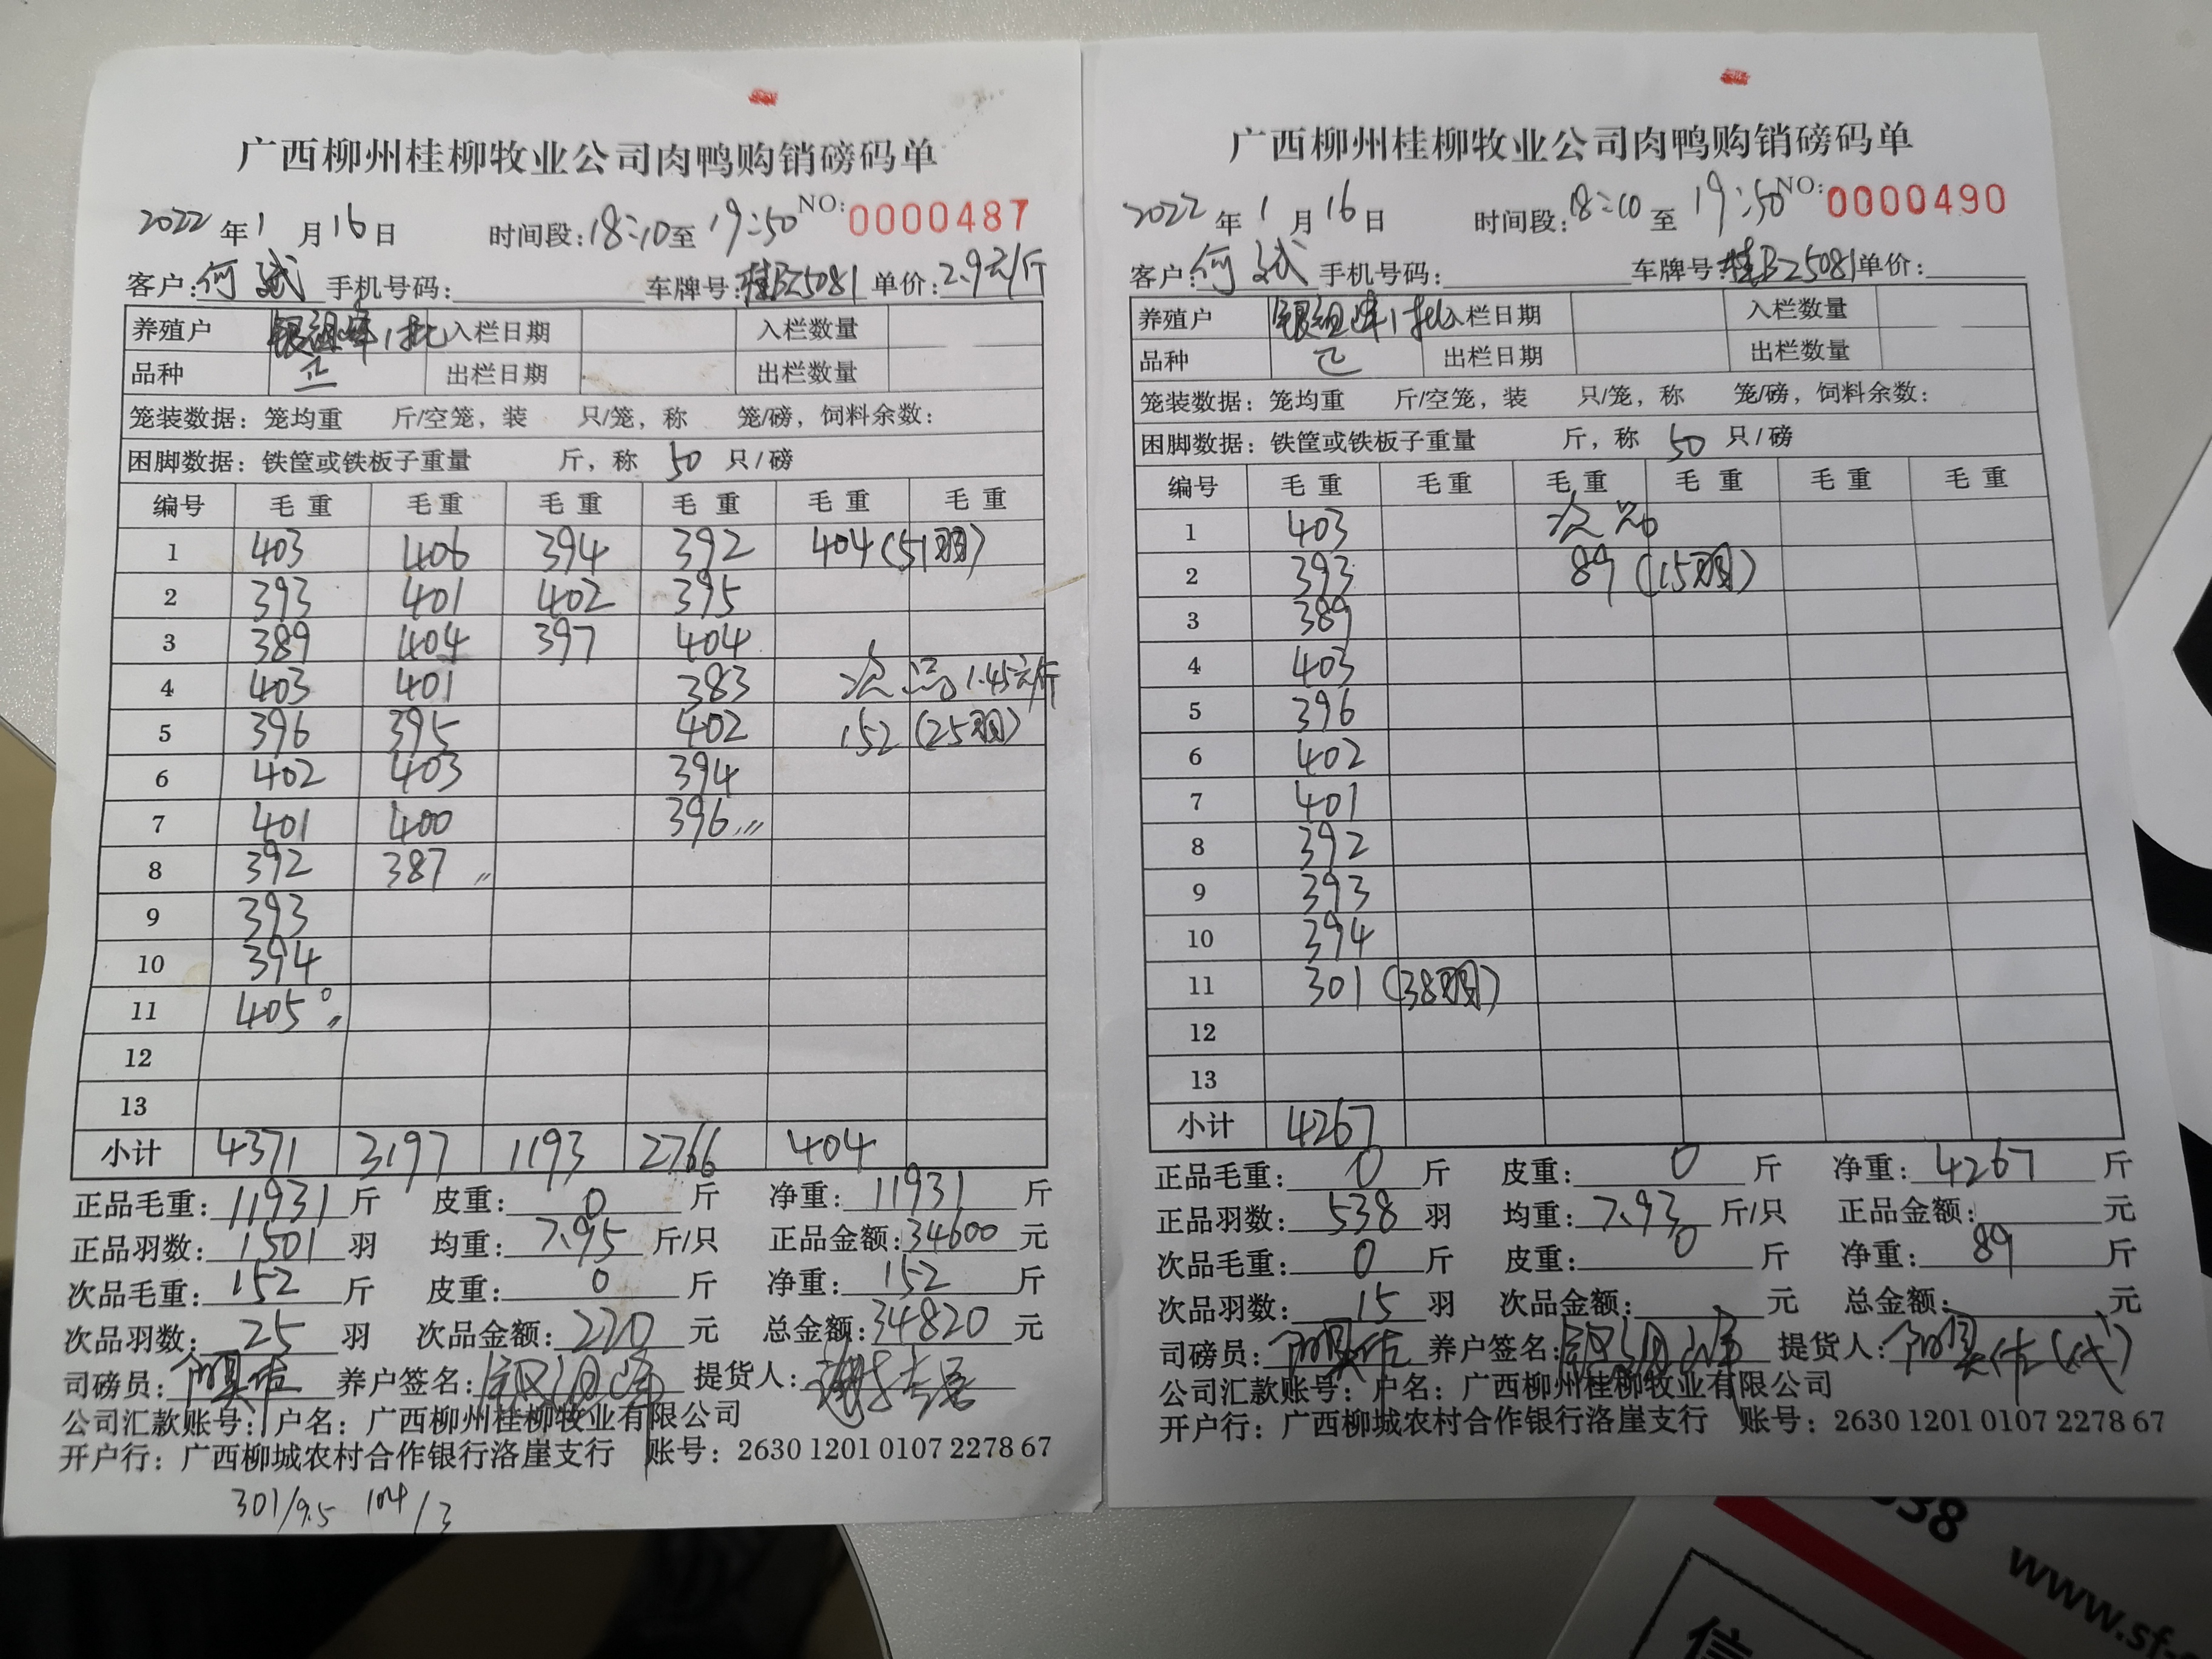 广西柳州桂柳牧业公司肉鸭购销磅码单
2022年1月16日 时间段:18:10至19:50 NO:0000487
客户:何斌 手机号码: 车牌号:桂BZ5081 单价:2.9元/斤
养殖户 银祖峰1批 入栏日期 入栏数量
品种 正 出栏日期 出栏数量
笼装数据:笼均重 斤/空笼,装 只/笼,称 笼/磅,饲料余数:
困脚数据:铁筐或铁板子重量 斤,称 50 只/磅
编号 毛重 毛重 毛重 毛重 毛重 毛重
1 403 406 394 392 404(51羽)
2 393 401 402 395
3 389 404 397 404
4 403 401 383 次品1.45元/斤
5 396 395 402 152(25羽)
6 402 403 394
7 401 400 396
8 392 387
9 393
10 394
11 405
12
13
小计 4371 3197 1193 2766 404
正品毛重:11931斤 皮重:0斤 净重:11931斤
正品羽数:1501羽 均重:7.95斤/只 正品金额:34600元
次品毛重:152斤 皮重:0斤 净重:152斤
次品羽数:25羽 次品金额:220元 总金额:34820元
司磅员: 养户签名:银祖峰 提货人:
公司汇款账号:户名:广西柳州桂柳牧业有限公司
开户行:广西柳城农村合作银行洛崖支行 账号:2630 1201 0107 2278 67
301/9.5 104/3
广西柳州桂柳牧业公司肉鸭购销磅码单
2022年1月16日 时间段:18:10至19:50 NO:0000490
客户:何斌 手机号码: 车牌号:桂BZ5081 单价:
养殖户 银祖峰1批 入栏日期 入栏数量
品种 出栏日期 出栏数量
笼装数据:笼均重 斤/空笼,装 只/笼,称 笼/磅,饲料余数:
困脚数据:铁筐或铁板子重量 斤,称 50 只/磅
编号 毛重 毛重 毛重 毛重 毛重 毛重
1 403 次品
2 393 89(15羽)
3 389
4 403
5 396
6 402
7 401
8 392
9 393
10 394
11 301(38羽)
12
13
小计 4267
正品毛重:0斤 皮重:0斤 净重:4267斤
正品羽数:538羽 均重:7.93斤/只 正品金额: 元
次品毛重:0斤 皮重:0斤 净重:89斤
次品羽数:15羽 次品金额: 元 总金额: 元
司磅员: 养户签名:银祖峰 提货人: (代)
公司汇款账号:户名:广西柳州桂柳牧业有限公司
开户行:广西柳城农村合作银行洛崖支行 账号:2630 1201 0107 2278 67
38
www.sf-
信